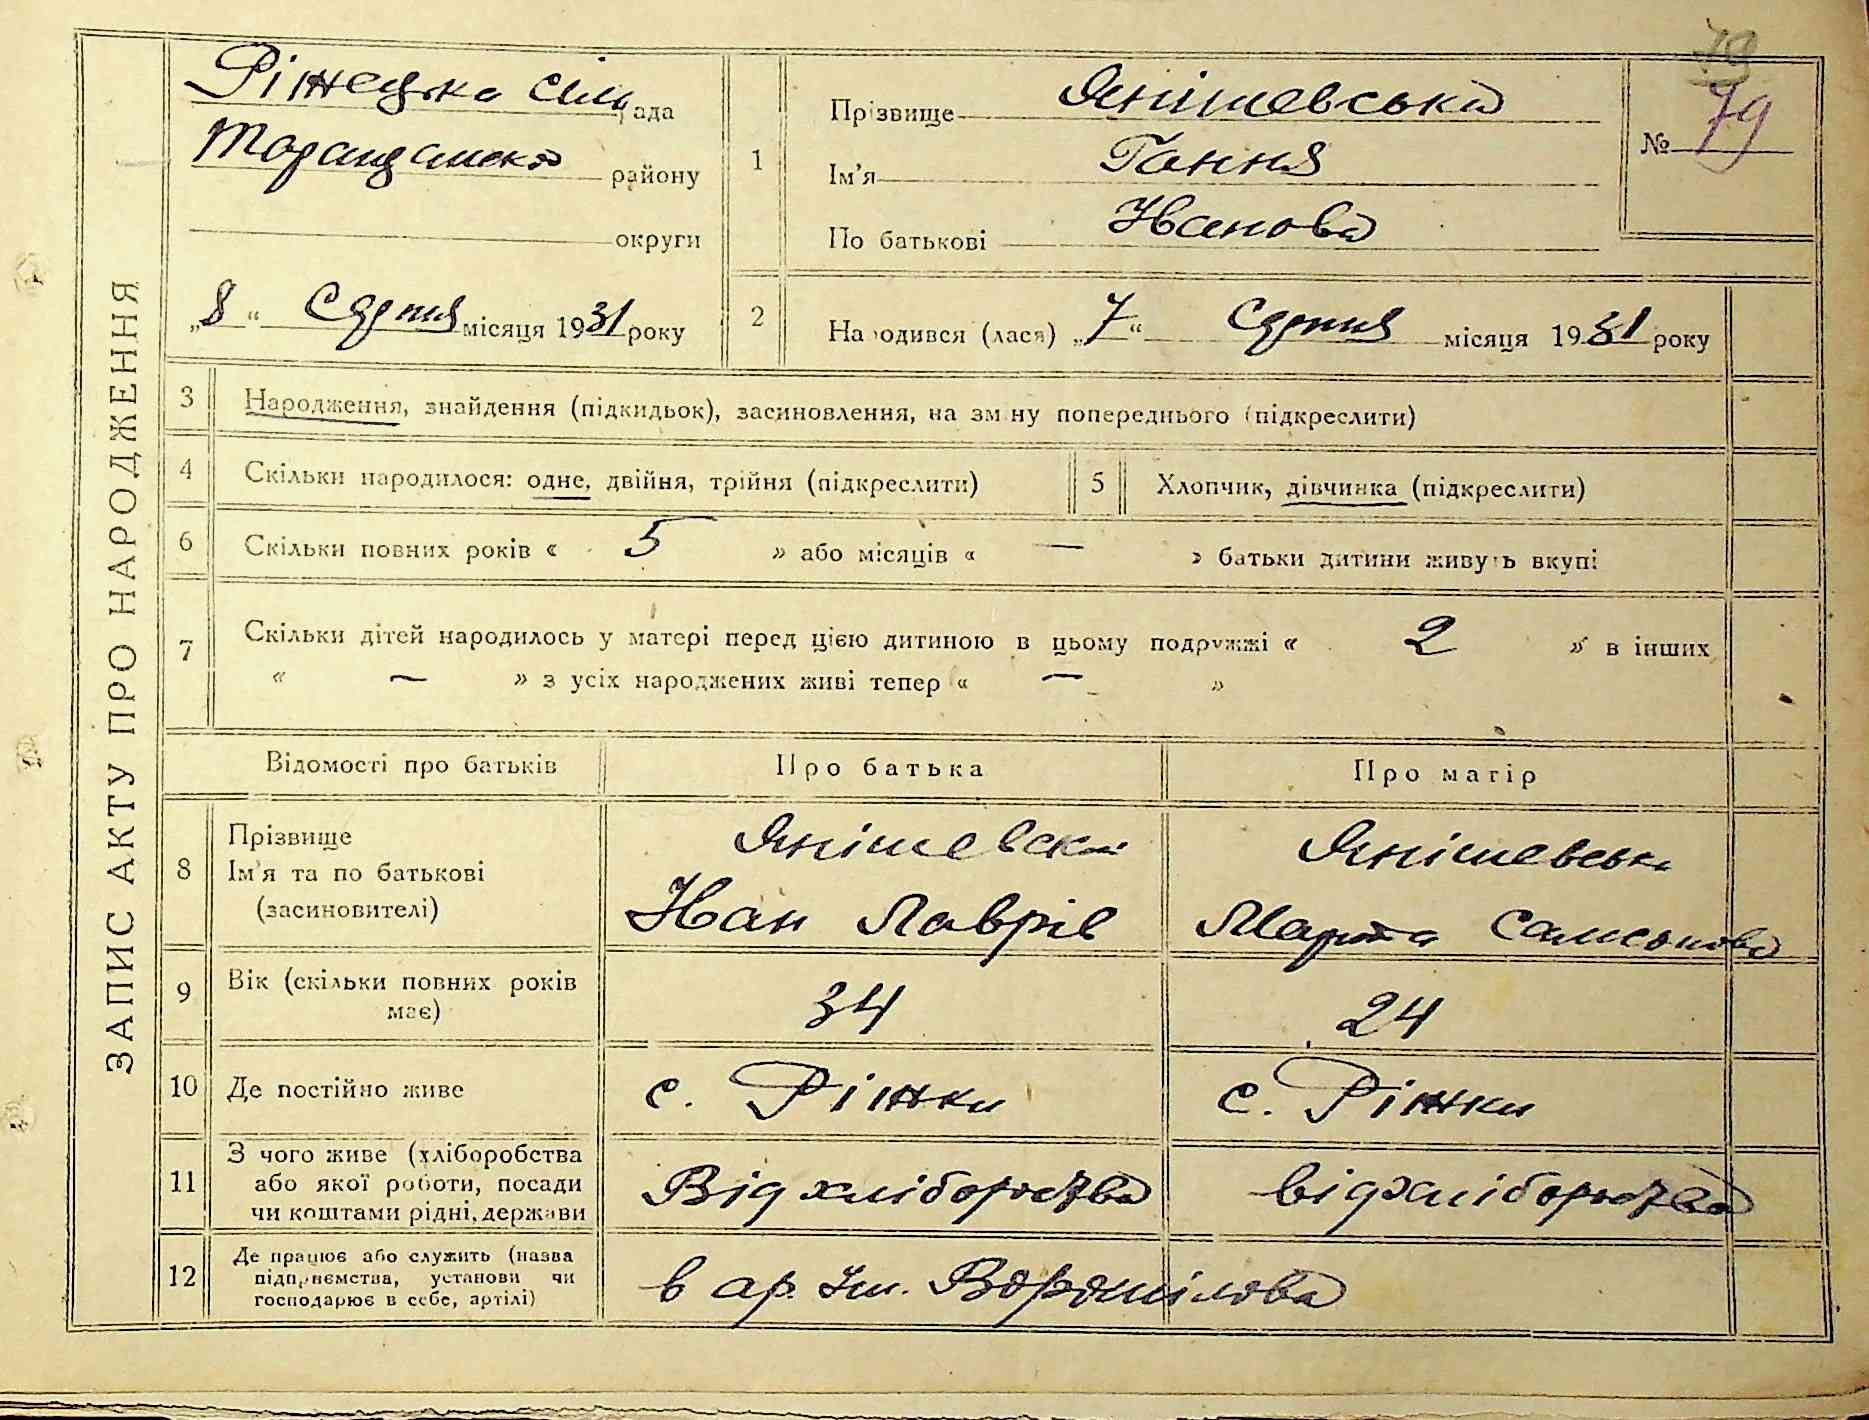 ЗАПИС АКТУ ПРО НАРОДЖЕННЯ
Ріжецька сільрада
району
округи
„8“ Серпня місяця 1931 року
1
Прізвище Янішевська
Ім’я Ганна
По батькові Іванова
79
№ 79
2
Народився (лася) „7“ Серпня місяця 1931 року
3 Народження, знайдення (підкидьок), засиновлення, на зміну попереднього (підкреслити)
4 Скільки народилося: одне, двійня, трійня (підкреслити)
5 Хлопчик, дівчинка (підкреслити)
6 Скільки повних років « 5 » або місяців « — » батьки дитини живуть вкупі
7 Скільки дітей народилось у матері перед цією дитиною в цьому подружжі « 2 » в інших
« — » з усіх народжених живі тепер « — »
Відомості про батьків Про батька Про матір
8 Прізвище
Ім’я та по батькові
(засиновителі)
Янішевск
Іван Лаврів
Янішевська
Марта Самсонова
9 Вік (скільки повних років
має)
34 24
10 Де постійно живе с. Ріжки с. Ріжки
11 З чого живе (хліборобства
або якої роботи, посади
чи коштами рідні, держави
Від хліборобства від хліборобства
12 Де працює або служить (назва
підприємства, установи чи
господарює в себе, артілі)
в ар. Ім. Ворошілова